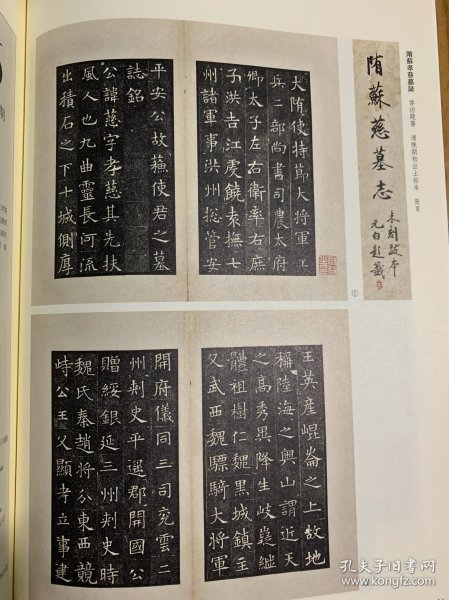 隋蘇孝慈墓誌
啓功題簽 清晚期初出土拓本 冊頁
隋蘇慈墓志
未刻跋本
元白題籤
①
大隋使持節大將軍工
兵二部尚書司農太府
卿太子左右衛率右庶
子洪吉江虔饒袁撫七
州諸軍事洪州総管安
平安公故蘇使君之墓
誌銘
公諱慈字孝慈其先扶
風人也九曲靈長河流
出積石之下十城側厚
王英產崐崘之上故地
稱陸海之奧山謂近天
之高秀異降生岐嶷繼
體祖樹仁魏黑城鎮主
父武西魏驃騎大將軍
開府儀同三司兖雲二
州刾史平遥郡開國公
贈綏銀延三州刾史時
魏氏秦趙將分東西競
峙公王父顯考立事建
孔夫子旧书网
book.kongfz.com